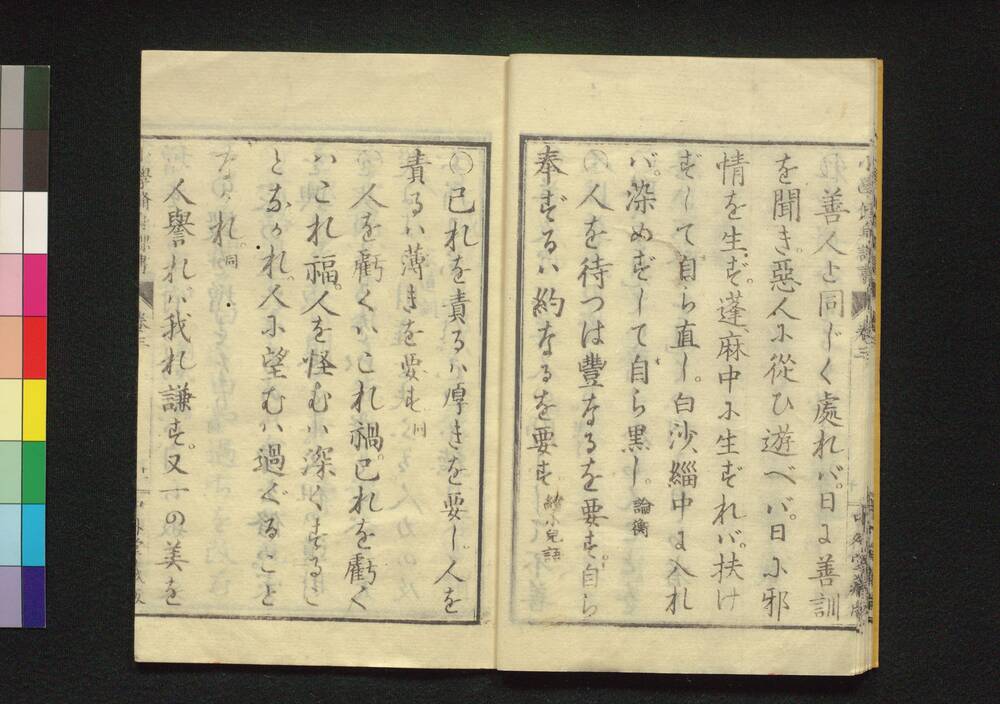 善人と同じく處れバ。日に善訓
を聞き。惡人に從ひ遊べバ。日に邪
情を生ず。蓬麻中に生ずれバ。扶け
ずして自ら直し。白沙緇中に入れ
バ。染めずして自ら黒し。論衡
人を待つは豐なるを要ず。自ら
奉ずるハ約なるを要す 續小兒語
〇己れを責るハ厚きを要し。人を
責るハ薄きを要す 同
人を虧くハこれ禍。己れを虧く
ハこれ福。人を怪むハ深くする
となかれ。人に望むハ過ぐること
なかれ。同
人譽れバ我れ謙す。又一の美を
卷三